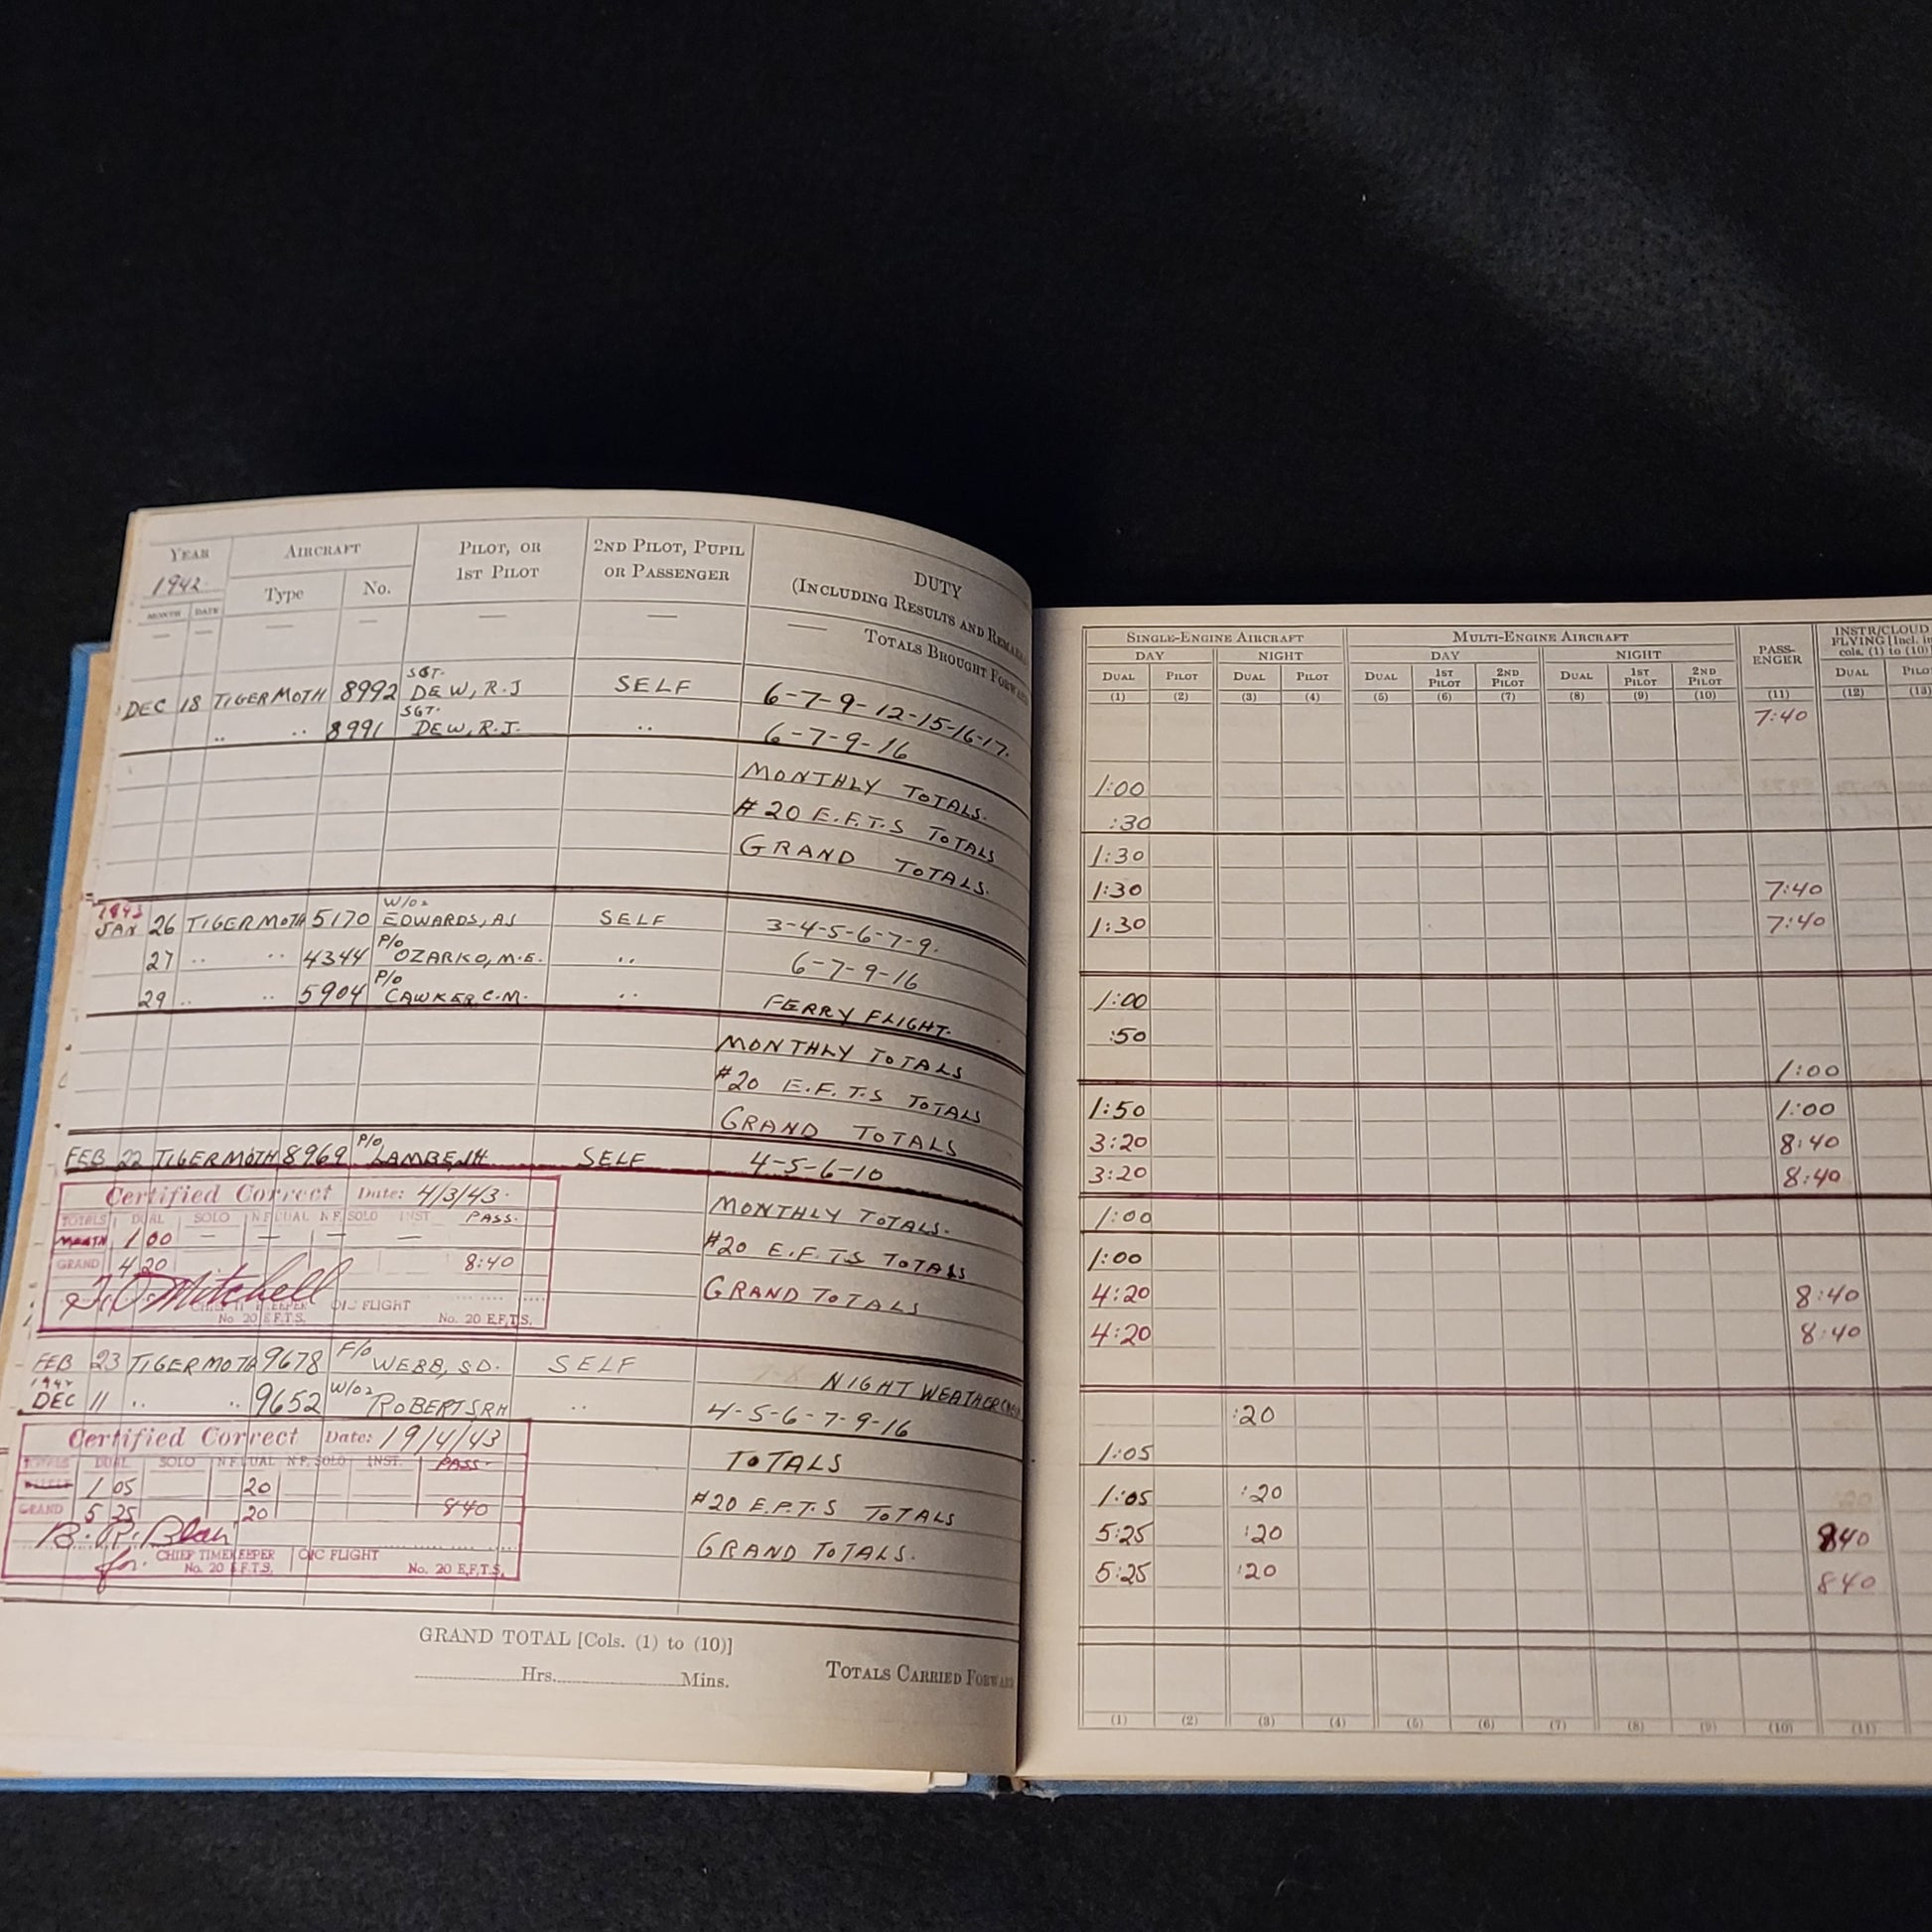 YEAR AIRCRAFT PILOT, OR 2ND PILOT, PUPIL DUTY
1942 Type No. 1ST PILOT OR PASSENGER (INCLUDING RESULTS AND REMARKS
MONTH DATE
— — — — — — TOTALS BROUGHT FORWARD
DEC 18 TIGER MOTH 8992 SGT. DEW, R.J SELF 6-7-9-12-15-16-17.
.. .. 8991 SGT. DEW, R.J. .. 6-7-9-16
MONTHLY TOTALS.
#20 E.F.T.S TOTALS
GRAND TOTALS.
1943
JAN 26 TIGER MOTH 5170 W/O2 EDWARDS, AJ SELF 3-4-5-6-7-9.
27 .. .. 4344 P/O OZARKO, M.E. .. 6-7-9-16
29 .. .. 5904 P/O CAWKER, C.M. .. FERRY FLIGHT.
MONTHLY TOTALS
#20 E.F.T.S TOTALS
GRAND TOTALS
FEB 22 TIGER MOTH 8969 P/O LAMBE, SELF 4-5-6-10
Certified Correct Date: 4/3/43.
TOTALS DUAL SOLO N.F. DUAL N.F. SOLO INST PASS.
MONTH 1 00 — — — —
GRAND 4 20 8:40
Mitchell
CHIEF TIMEKEEPER O/C FLIGHT
No. 20 E.F.T.S. No. 20 E.F.T.S.
MONTHLY TOTALS.
#20 E.F.T.S TOTALS
GRAND TOTALS
FEB 23 TIGER MOTH 9678 F/O WEBB, S.D. SELF NIGHT WEATHER
1942
DEC 11 .. .. 9652 W/O2 ROBERTS RH .. 4-5-6-7-9-16
Certified Correct Date: 19/4/43
TOTALS DUAL SOLO N.F. DUAL N.F. SOLO INST. PASS.
1 05 20
GRAND 5 25 20 840
B. R. Blair
for. CHIEF TIMEKEEPER O/C FLIGHT
No. 20 E.F.T.S. No. 20 E.F.T.S.
TOTALS
#20 E.F.T.S TOTALS
GRAND TOTALS.
GRAND TOTAL [Cols. (1) to (10)]
Hrs. Mins. TOTALS CARRIED FORWARD
SINGLE-ENGINE AIRCRAFT MULTI-ENGINE AIRCRAFT PASSENGER INSTR/CLOUD FLYING [Incl. in cols. (1) to (10)]
DAY NIGHT DAY NIGHT
DUAL PILOT DUAL PILOT DUAL 1ST PILOT 2ND PILOT DUAL 1ST PILOT 2ND PILOT DUAL PILOT
(1) (2) (3) (4) (5) (6) (7) (8) (9) (10) (11) (12) (13)
7:40
1:00
:30
1:30
1:30 7:40
1:30 7:40
1:00
:50
1:00
1:50 1:00
3:20 8:40
3:20 8:40
1:00
1:00
4:20 8:40
4:20 8:40
:20
1:05
1:05 :20
5:25 :20 840
5:25 :20 840
(1) (2) (3) (4) (5) (6) (7) (8) (9) (10) (11)